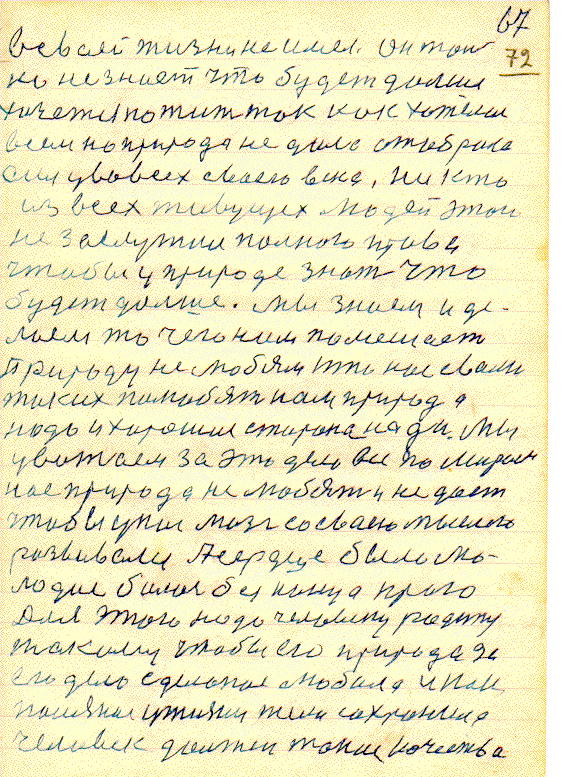 67
72
всвоей жизни не имел. Он толь
ко не знает что будет дальше
хочется пожить так как хотелось
всем но природа не дала отобрала
силу у вовсех своего века. Никто
из всех живущих людей этого
не заслужил полного права
чтобы у природе знать что
будет дальше. Мы знаем и де-
лаем то чего нам помешает
Природу не любям
таких полюбят нам природа
надо и хорошая сторона надо. Мы
уважаем за это дело все по
нас природа не любят и не дает
чтобы у нас мозг со своею мыслею
развивали А сердце было мо-
лодые без конца
Для этого надо человеку родину
такому чтобы его природа за
его дело сделаное любила и нам
жизни тело сохранила
человек должен такие качества